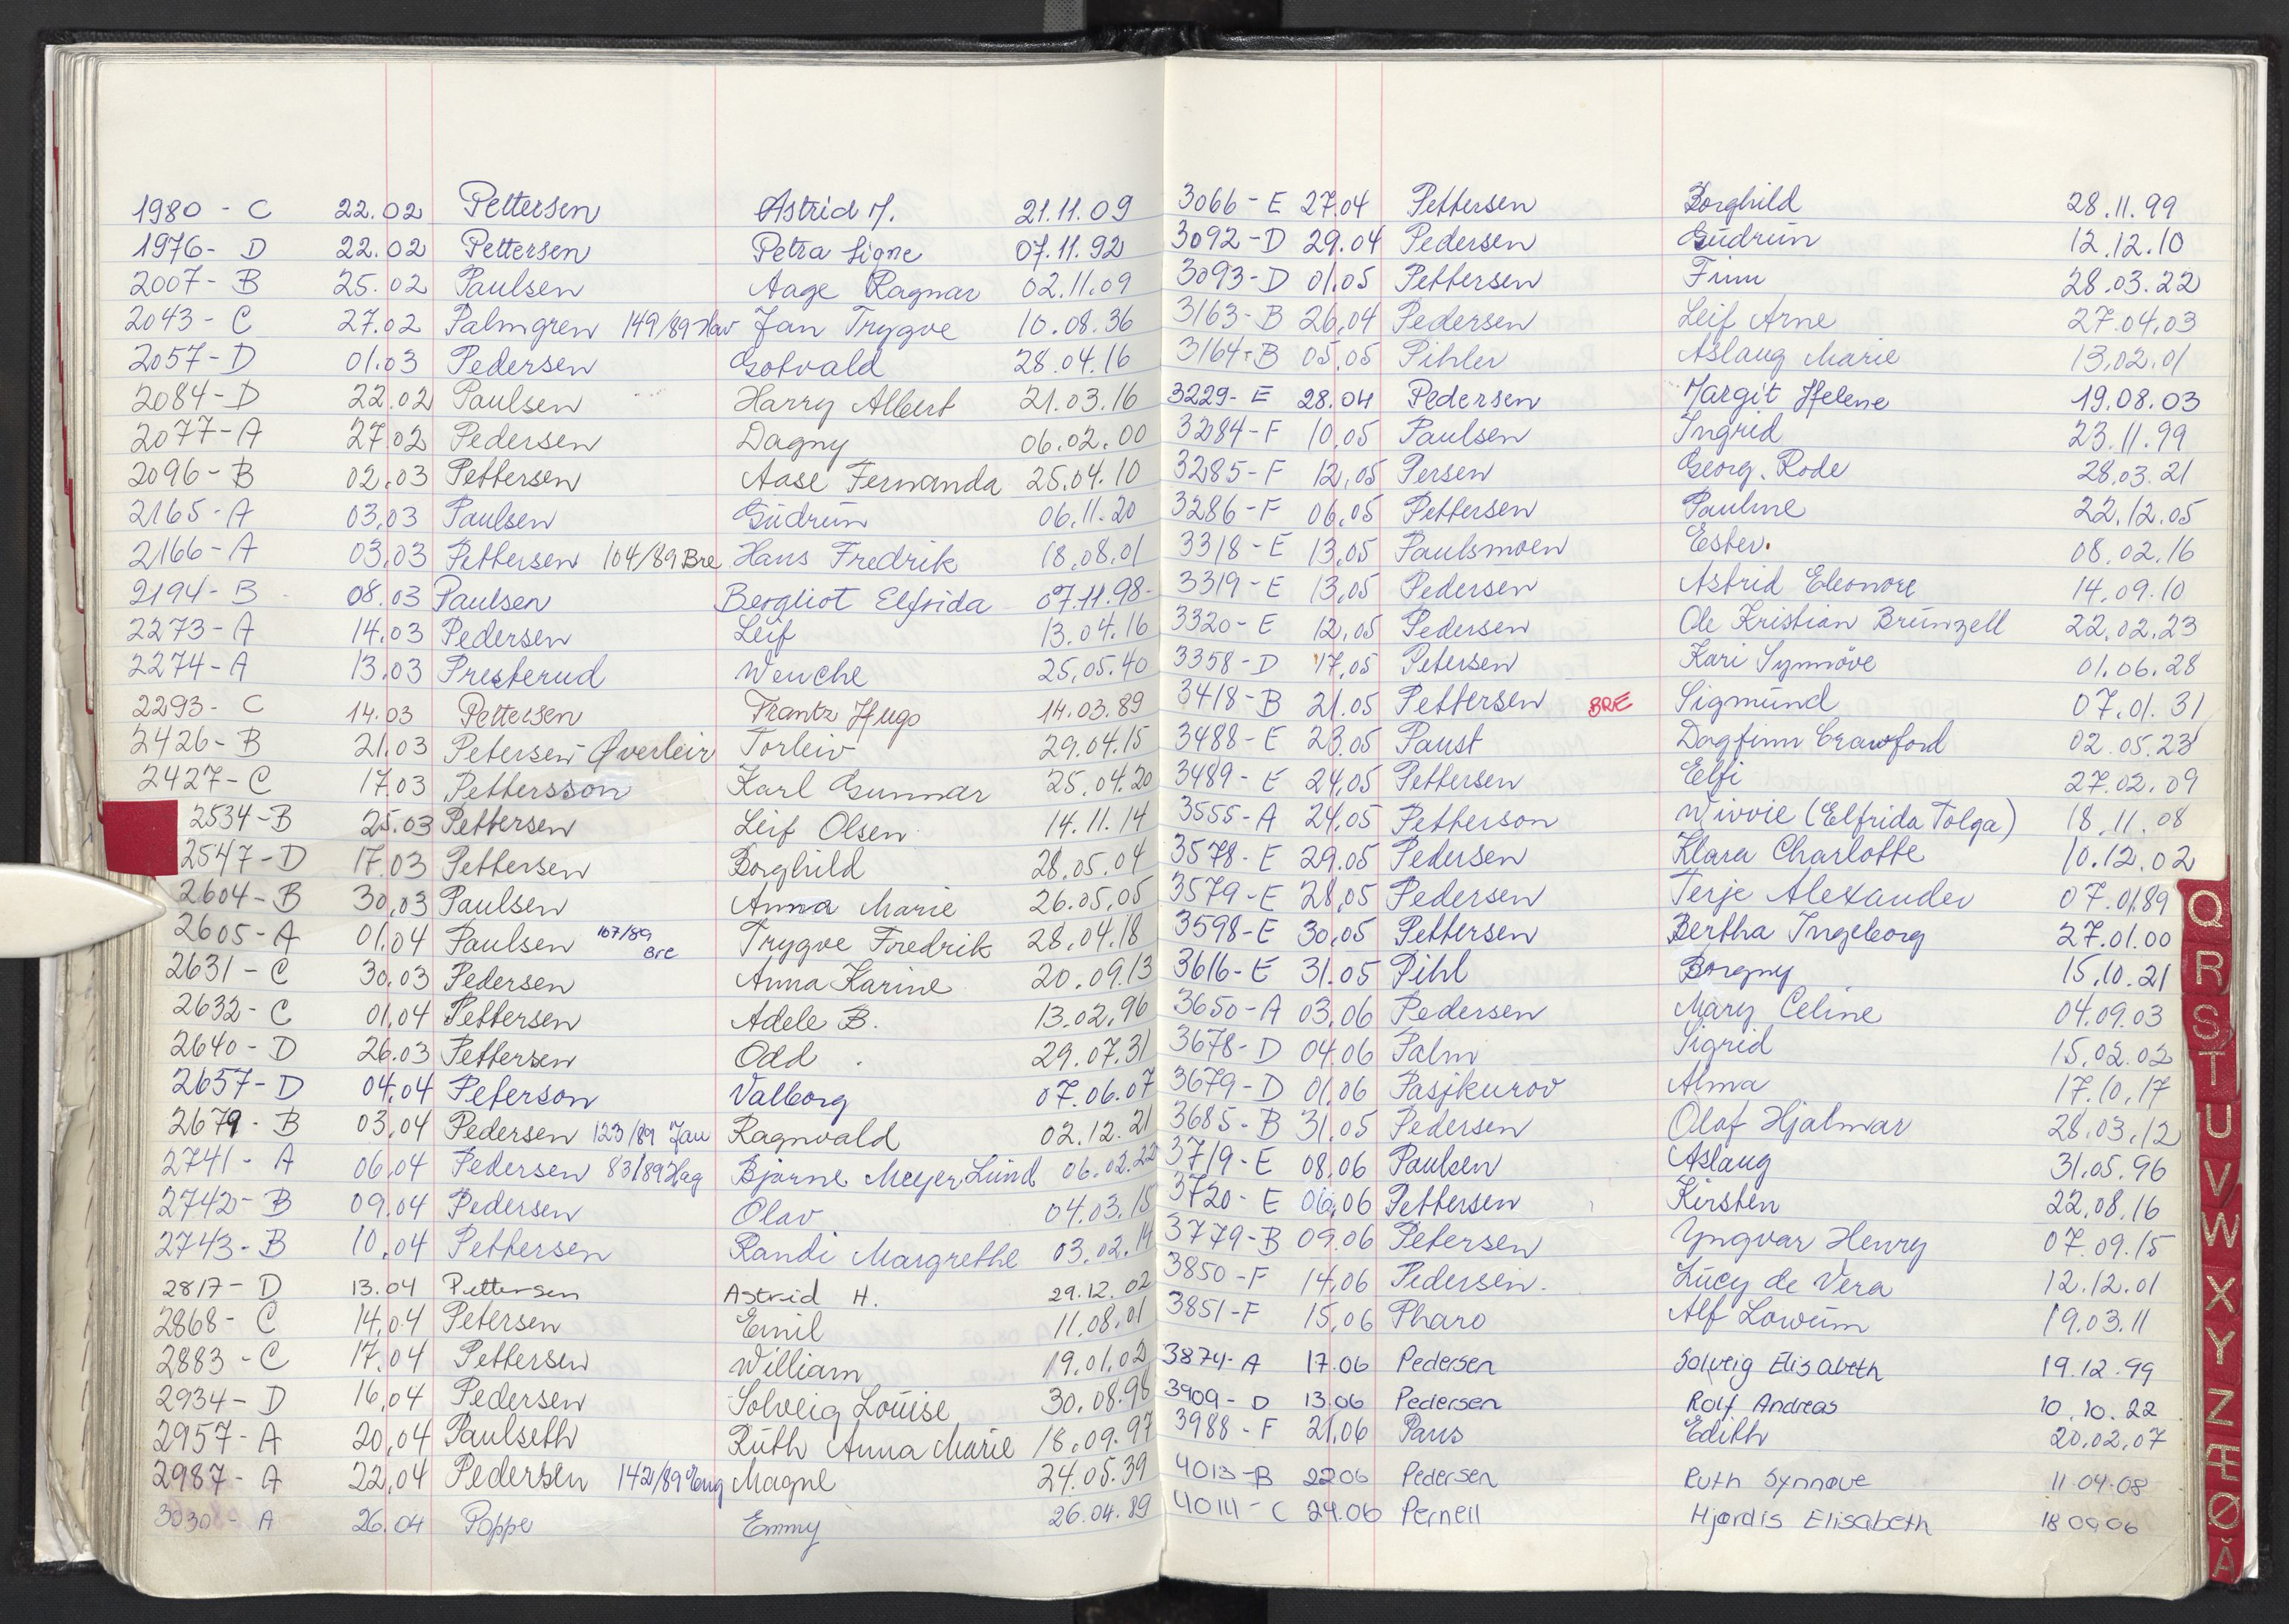 1980 - C 22.02 Pettersen Astrid M. 21.11.09
1976- D 22.02 Pettersen Petra Signe 07.11.92
2007- B 25.02 Paulsen Aage Ragnar 02.11.09
2043 - C 27.02 Palmgren 149/89 Hav Jan Trygve 10.08.36
2057- D 01.03 Pedersen Gotvald 28.04.16
2084-D 22.02 Paulsen Harry Albert 21.03.16
2077-A 27.02 Pedersen Dagny 06.02.00
2096-B 02.03 Pettersen Aase Fernanda 25.04.10
2165-A 03.03 Paulsen Gudrun 06.11.20
2166-A 03.03 Pettersen 104/89 Bre Hans Fredrik 18.08.01
2194-B 08.03 Paulsen Bergliot Elfrida 07.11.98
2273-A 14.03 Pedersen Leif 13.04.16
2274-A 13.03 Presterud Wenche 25.05.40
2293- C 14.03 Pettersen Frantz Hugo 14.03.89
2426-B 21.03 Petersen-Øverleir Torleiv 29.04.15
2427-C 17.03 Pettersson Karl Gunnar 25.04.20
2534-B 25.03 Pettersen Leif Olsen 14.11.14
2547-D 17.03 Pettersen Borghild 28.05.04
2604-B 30.03 Paulsen Anna Marie 26.05.05
2605-A 01.04 Paulsen 107/89 Bre Trygve Fredrik 28.04.18
2631-C 30.03 Pedersen Anna Karine 20.09.13
2632-C 01.04 Pettersen Adele B. 13.02.96
2640-D 26.03 Pettersen Odd 29.07.31
2657-D 04.04 Peterson Valborg 07.06.07
2679-B 03.04 Pedersen 123/89 Jau Ragnvald 02.12.21
2741-A 06.04 Pedersen 83/89 Hag Bjarne Meyer Lund 06.02.22
2742-B 09.04 Pedersen Olav 04.03.15
2743-B 10.04 Pettersen Randi Margrethe 03.02.14
2817-D 13.04 Pettersen Astrid H. 29.12.02
2868- C 14.04 Petersen Emil 11.08.01
2883-C 17.04 Pettersen William 19.01.02
2934-D 16.04 Pedersen Solveig Louise 30.08.98
2957-A 20.04 Paulseth Ruth Anna Marie 18.09.97
2987-A 22.04 Pedersen 142/89 Magne 24.05.39
3030-A 26.04 Poppe Emmy 26.04.89
3066-E 27.04 Pettersen Borghild 28.11.99
3092-D 29.04 Pedersen Gudrun 12.12.10
3093-D 01.05 Pettersen Finn 28.03.22
3163-B 26.04 Pedersen Leif Arne 27.04.03
3164-B 05.05 Pihler Aslaug Marie 13.02.01
3229-E 28.04 Pedersen Margit Helene 19.08.03
3284-F 10.05 Paulsen Ingrid 23.11.99
3285-F 12.05 Persen Georg. Rode 28.03.21
3286-F 06.05 Pettersen Pauline 22.12.05
3318-E 13.05 Paulsmoen Ester. 08.02.16
3319-E 13.05 Pedersen Astrid Eleonore 14.09.10
3320-E 12.05 Pedersen Ole Kristian Brunzell 22.02.23
3358-D 17.05 Petersen Kari Synnöve 01.06.28
3418-B 21.05 Pettersen BRE Sigmund 07.01.31
3488-E 23.05 Paust Dagfinn Crawford 02.05.23
3489-E 24.05 Pettersen Elfi 27.02.09
3555-A 24.05 Petterson Wivvie (Elfrida Tolga) 18.11.08
3578-E 29.05 Pedersen Klara Charlotte 10.12.02
3579-E 28.05 Pedersen Terje Alexander 07.01.89
3598-E 30.05 Pettersen Bertha Ingeborg 27.01.00
3616-E 31.05 Pihl Borgny 15.10.21
3650-A 03.06 Pedersen Mary Celine 04.09.03
3678-D 04.06 Palm Sigrid 15.02.02
3679-D 01.06 Pasjkurov Alma 17.10.17
3685-B 31.05 Pedersen Olaf Hjalmar 28.03.12
3719-E 08.06 Paulsen Aslaug 31.05.96
3720-E 06.06 Pettersen Kirsten 22.08.16
3779-B 09.06 Petersen Yngvar Henry 07.09.15
3850-F 14.06 Pedersen. Lucy de Vera 12.12.01
3851-F 15.06 Pharo Alf Lowum 19.03.11
3874-A 17.06 Pedersen Solveig Elisabeth 19.12.99
3909-D 13.06 Pedersen Rolf Andreas 10.10.22
3988-F 21.06 Paus Edith 20.02.07
4013-B 22.06 Pedersen Ruth Synnøve 11.04.08
4014-C 24.06 Pernell Hjørdis Elisabeth 18 09 06
Q
R
S
T
U
V
W
X
Y
Z
Æ
Ø
Å